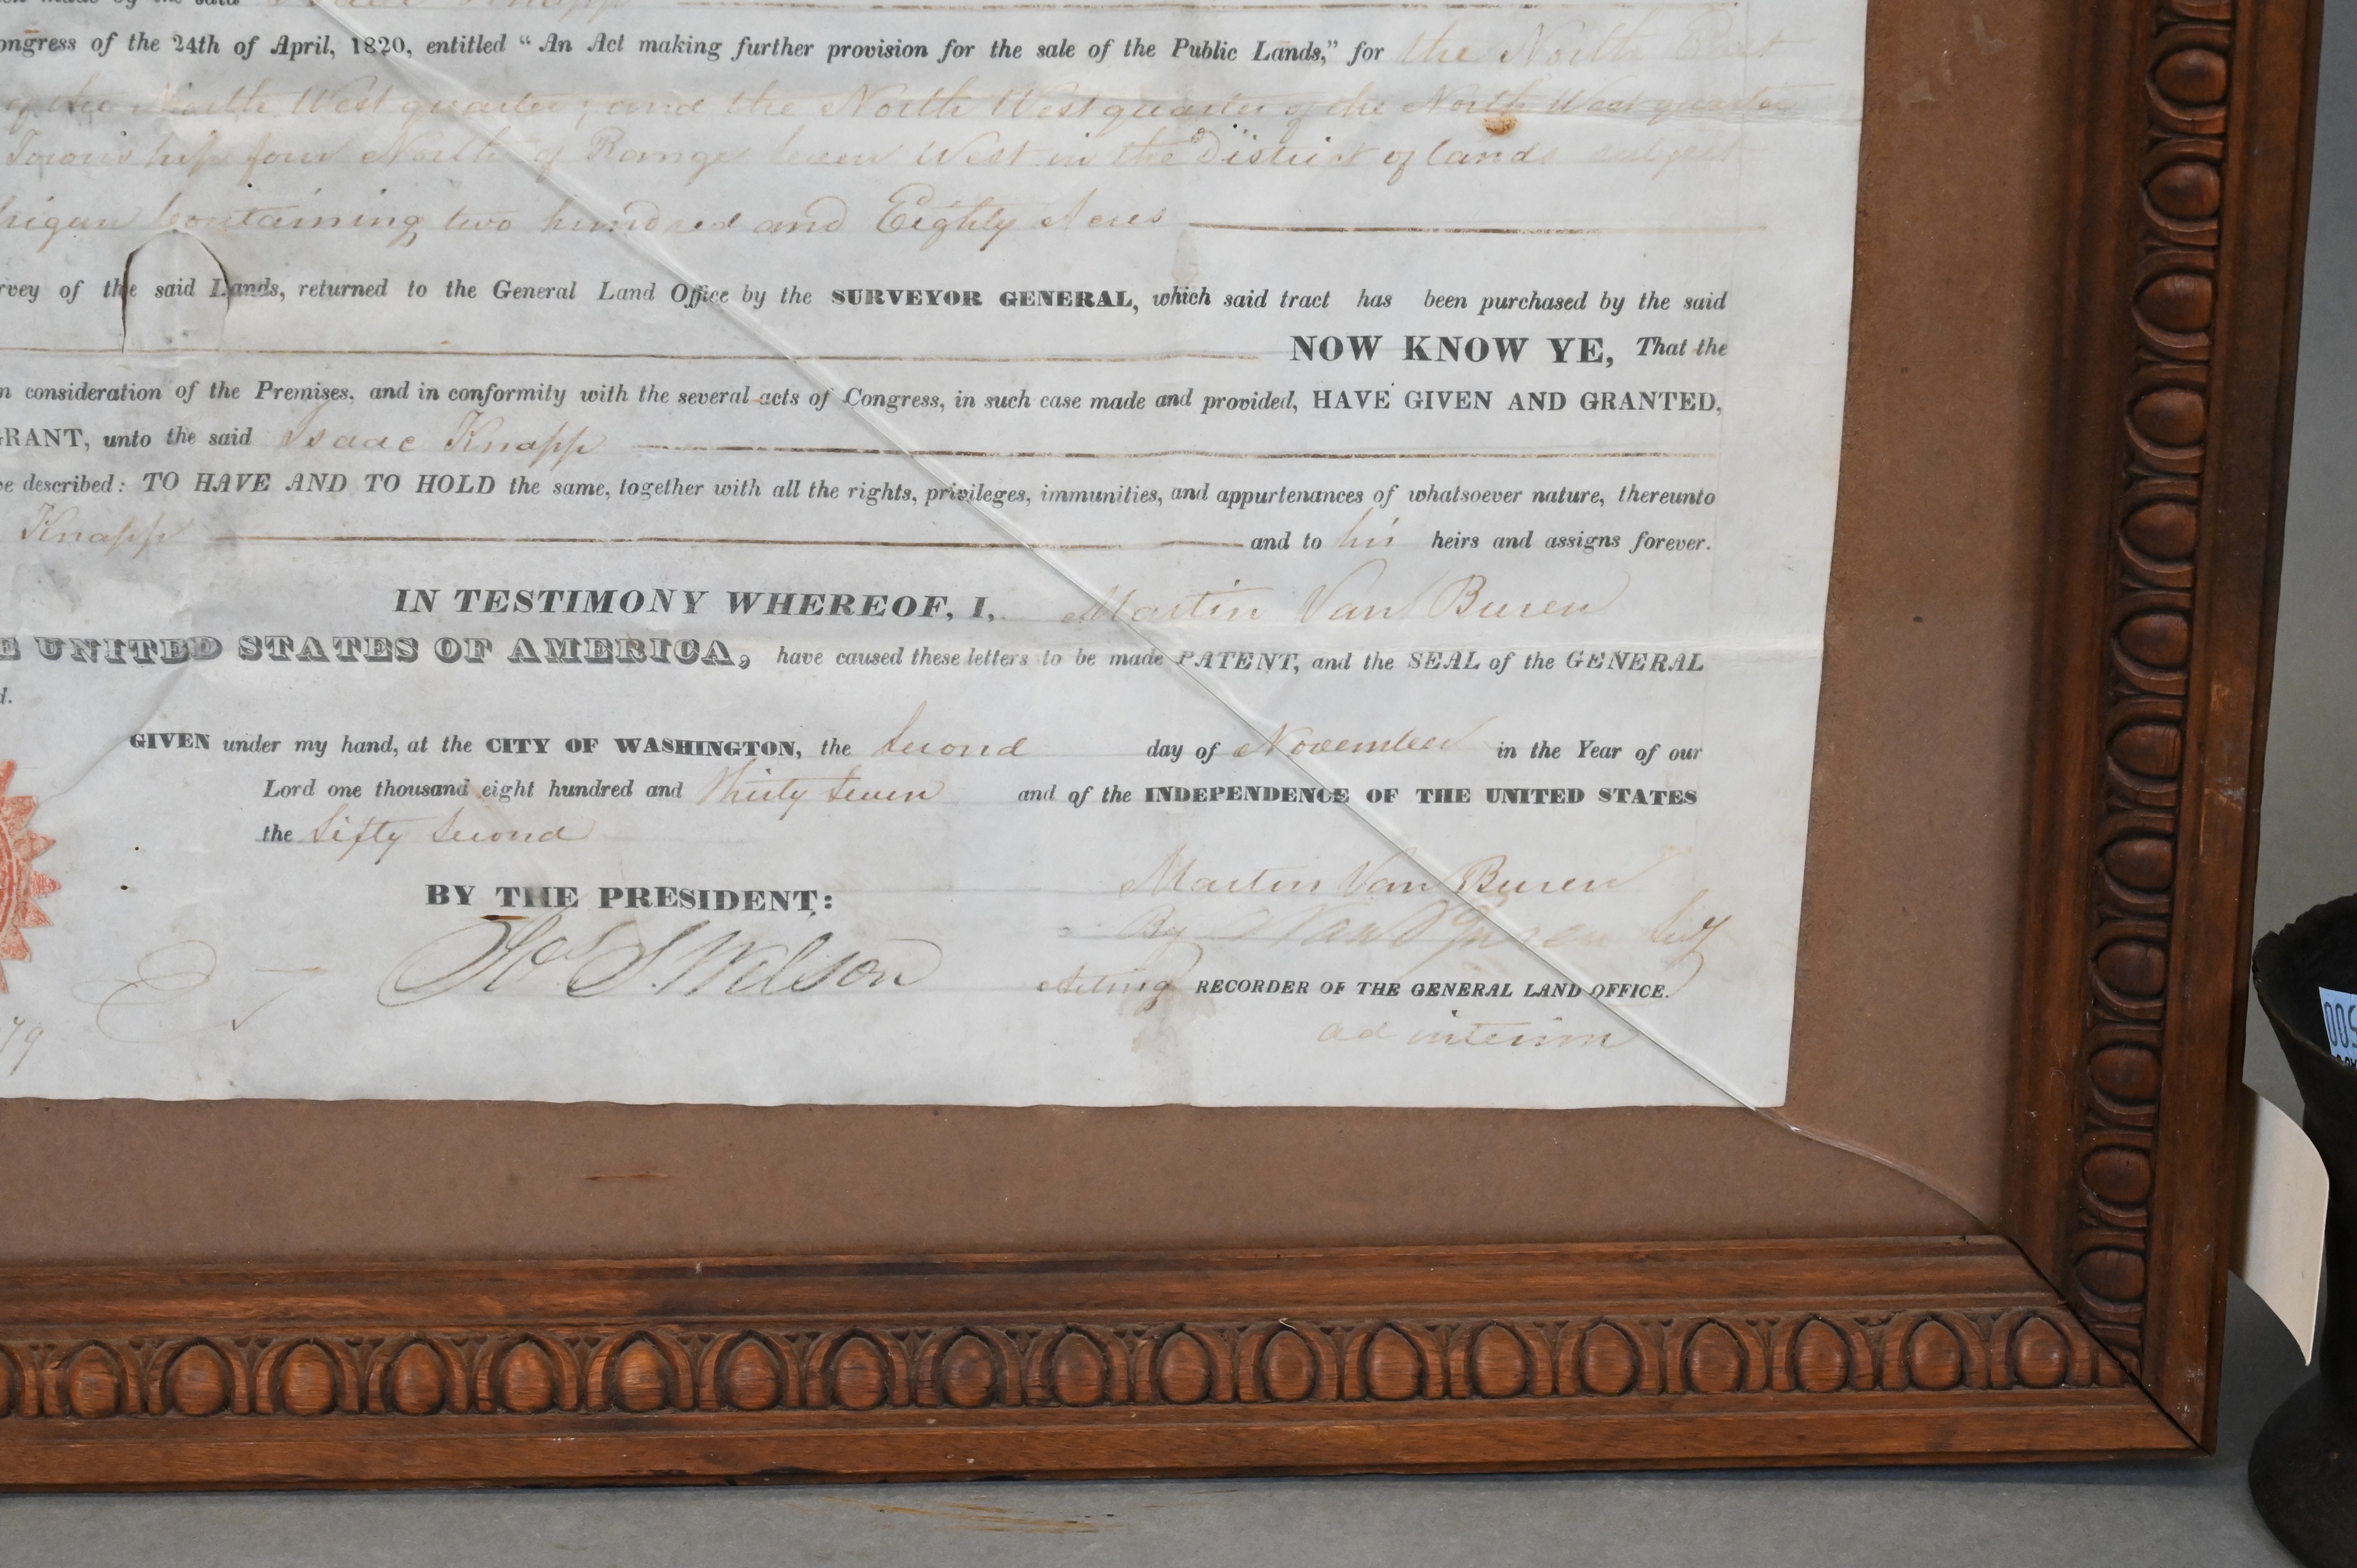 made by the said Isaac Knapp
ongress of the 24th of April, 1820, entitled “An Act making further provision for the sale of the Public Lands,” for the North East
of the North West quarter; and the North West quarter of the North West quarter
Township four North of Range seven West in the District of lands subject
higan Containing two hundred and Eighty Acres
rvey of the said Lands, returned to the General Land Office by the SURVEYOR GENERAL, which said tract has been purchased by the said
NOW KNOW YE, That the
n consideration of the Premises, and in conformity with the several acts of Congress, in such case made and provided, HAVE GIVEN AND GRANTED,
GRANT, unto the said Isaac Knapp
ve described: TO HAVE AND TO HOLD the same, together with all the rights, privileges, immunities, and appurtenances of whatsoever nature, thereunto
Knapp and to his heirs and assigns forever.
IN TESTIMONY WHEREOF, I, Martin Van Buren
E UNITED STATES OF AMERICA, have caused these letters to be made PATENT, and the SEAL of the GENERAL
d.
GIVEN under my hand, at the CITY OF WASHINGTON, the Second day of November in the Year of our
Lord one thousand eight hundred and Thirty Seven and of the INDEPENDENCE OF THE UNITED STATES
the Sixty Second
BY THE PRESIDENT: Martin Van Buren
By Van Buren Secy
S. Wilson Acting RECORDER OF THE GENERAL LAND OFFICE.
ad interim
79
005